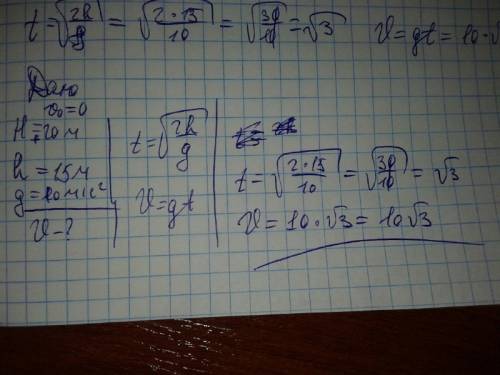 t = √(2h/g) = √(2·15/10) = √(30/10) = √3 V = gt = 10·√
Дано
v₀ = 0
H = 20 м
h = 15 м
g = 10 м/с²
V - ?
t = √(2h/g)
V = gt
t = √(2·15/10) = √(30/10) = √3
V = 10·√3 = 10√3